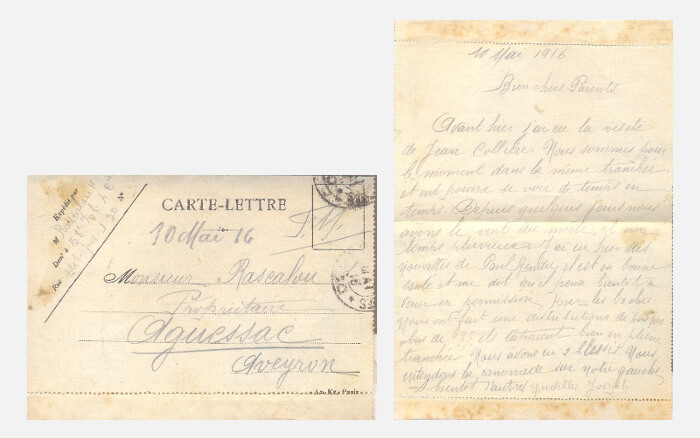 CARTE-LETTRE
Expédié par
M
Rue
Nº
F.M.
10 Mai 16
Monsieur Rascalou
Propriétaire
Aguessac
Aveyron
An. Ke. Paris
10 Mai 1916
Bien chers Parents
Avant hier j'ai eu la visite
de Jean Collière. Nous sommes pour
le moment dans la même tranchée
et ont pourra se voir de temps en
temps. Depuis quelques jours nous
avons le vent du midi et un
temps pluvieux. J'ai eu hier des
nouvelles de Paul il est en bonne
santé et me dit qu'il pense bientôt
venir en permission. les boches
nous ont fait une distribution de
obus de 77 ils tapaient bien en pleine
tranchée. Nous avons eu 2 blessés. Nous
entendons la canonade sur notre gauche.
A bientôt d'autres nouvelles Joseph